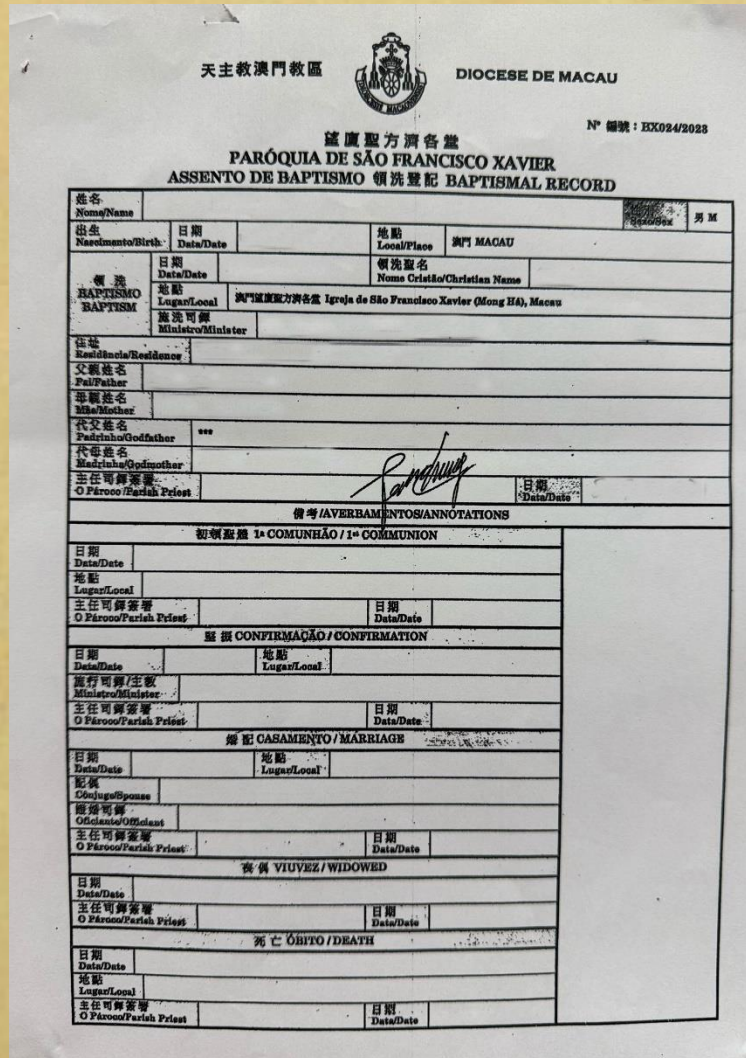 天主教澳門教區
DIOCESE DE MACAU
Nº 編號：BX024/2023
望廈聖方濟各堂
PARÓQUIA DE SÃO FRANCISCO XAVIER
ASSENTO DE BAPTISMO 領洗登記 BAPTISMAL RECORD
姓名
Nome/Name
性別
Sexo/Sex
男 M
出生
Nascimento/Birth
日期
Data/Date
地點
Local/Place
澳門 MACAU
領洗
BAPTISMO
BAPTISM
日期
Data/Date
領洗聖名
Nome Cristão/Christian Name
地點
Lugar/Local
澳門望廈聖方濟各堂 Igreja de São Francisco Xavier (Mong Há), Macau
施洗司鐸
Ministro/Minister
住址
Residência/Residence
父親姓名
Pai/Father
母親姓名
Mãe/Mother
代父姓名
Padrinho/Godfather
***
代母姓名
Madrinha/Godmother
主任司鐸簽署
O Pároco/Parish Priest
日期
Data/Date
備考/AVERBAMENTOS/ANNOTATIONS
初領聖體 1ª COMUNHÃO / 1st COMMUNION
日期
Data/Date
地點
Lugar/Local
主任司鐸簽署
O Pároco/Parish Priest
日期
Data/Date
堅振 CONFIRMAÇÃO / CONFIRMATION
日期
Data/Date
地點
Lugar/Local
施行司鐸/主教
Ministro/Minister
主任司鐸簽署
O Pároco/Parish Priest
日期
Data/Date
婚配 CASAMENTO / MARRIAGE
日期
Data/Date
地點
Lugar/Local
配偶
Cônjuge/Spouse
證婚司鐸
Oficiante/Officiant
主任司鐸簽署
O Pároco/Parish Priest
日期
Data/Date
喪偶 VIUVEZ / WIDOWED
日期
Data/Date
主任司鐸簽署
O Pároco/Parish Priest
日期
Data/Date
死亡 ÓBITO / DEATH
日期
Data/Date
地點
Lugar/Local
主任司鐸簽署
O Pároco/Parish Priest
日期
Data/Date